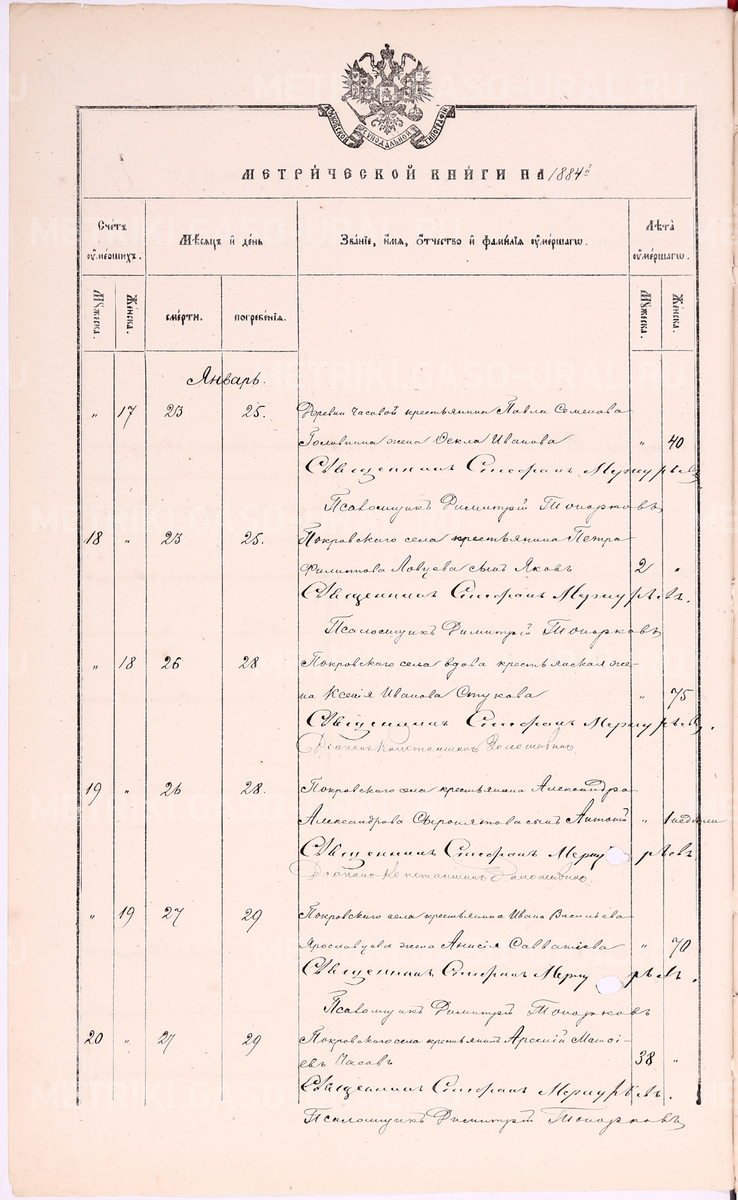 МОСКОВСКОЙ СѴНОДАЛЬНОЙ ТИПОГРАФІИ
МЕТРИ́ЧЕСКОЙ КНИ́ГИ НА 1884й
Сче́тъ ᲂу҆ме́ршихъ. Мѣ́сѧцъ и҆ де́нь Зва́нїе, и҆́мѧ, ѻ҆́тчество и҆ фами́лїѧ ᲂу҆ме́ршагѡ. Лѣ́та ᲂу҆ме́ршагѡ.
Мꙋ́жеска. Же́нска. сме́рти. погребе́нїѧ. Мꙋ́жеска. Же́нска.
Январь.
„ 17 23 25. Деревни Часовой крестьянина Павла Семенова
Головина жена Фекла Иванова „ 40
Священникъ Стефанъ Меркурьевъ
Псаломщикъ Димитрій Топорковъ
18 „ 23 25. Покровскаго села крестьянина Петра
Филиппова Ловцева сынъ Яковъ 2 „
Священникъ Стефанъ Меркурьевъ.
Псаломщикъ Димитрій Топорковъ
„ 18 26 28 Покровскаго села вдова крестьянская же-
на Ксенія Иванова Стукова „ 75
Священникъ Стефанъ Меркурьевъ.
Діаконъ Константинъ
19 „ 26 28. Покровскаго села крестьянина Александра
Александрова Сыропятова сынъ Антоній „ 1 недѣли
Священникъ Стефанъ Меркурьевъ
Діаконъ Константинъ
„ 19 27 29 Покровскаго села крестьянина Ивана Васильева
Ярославцева жена Анисія Савватіева „ 70
Священникъ Стефанъ Меркурьевъ.
Псаломщикъ Димитрій Топорковъ
20 „ 27 29 Покровскаго села крестьянинъ Арсеній Матѳі-
евъ Часовъ 38 „
Священникъ Стефанъ Меркурьевъ.
Псаломщикъ Димитрій Топорковъ